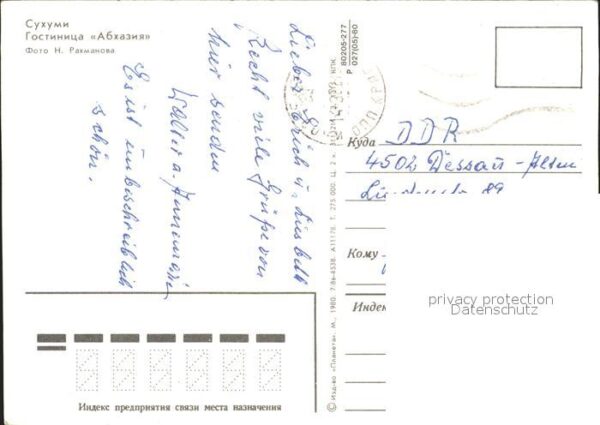 Сухуми
Гостиница «Абхазия»
Фото Н. Рахманова
Lieber Erich u. Lisbeth
Recht viele Grüße von
hier senden
Walter u. Annemarie
Es ist unbeschreiblich
schön.
80205-277
Р 027(05)-80
© Изд-во «Планета». М., 1980. 7-86-8538. А11178. Т. 275.000. Ц. 2 к.
Куда DDR
4502 Dessau-Alten
89
Кому
Индекс
privacy protection
Datenschutz
Индекс предприятия связи места назначения